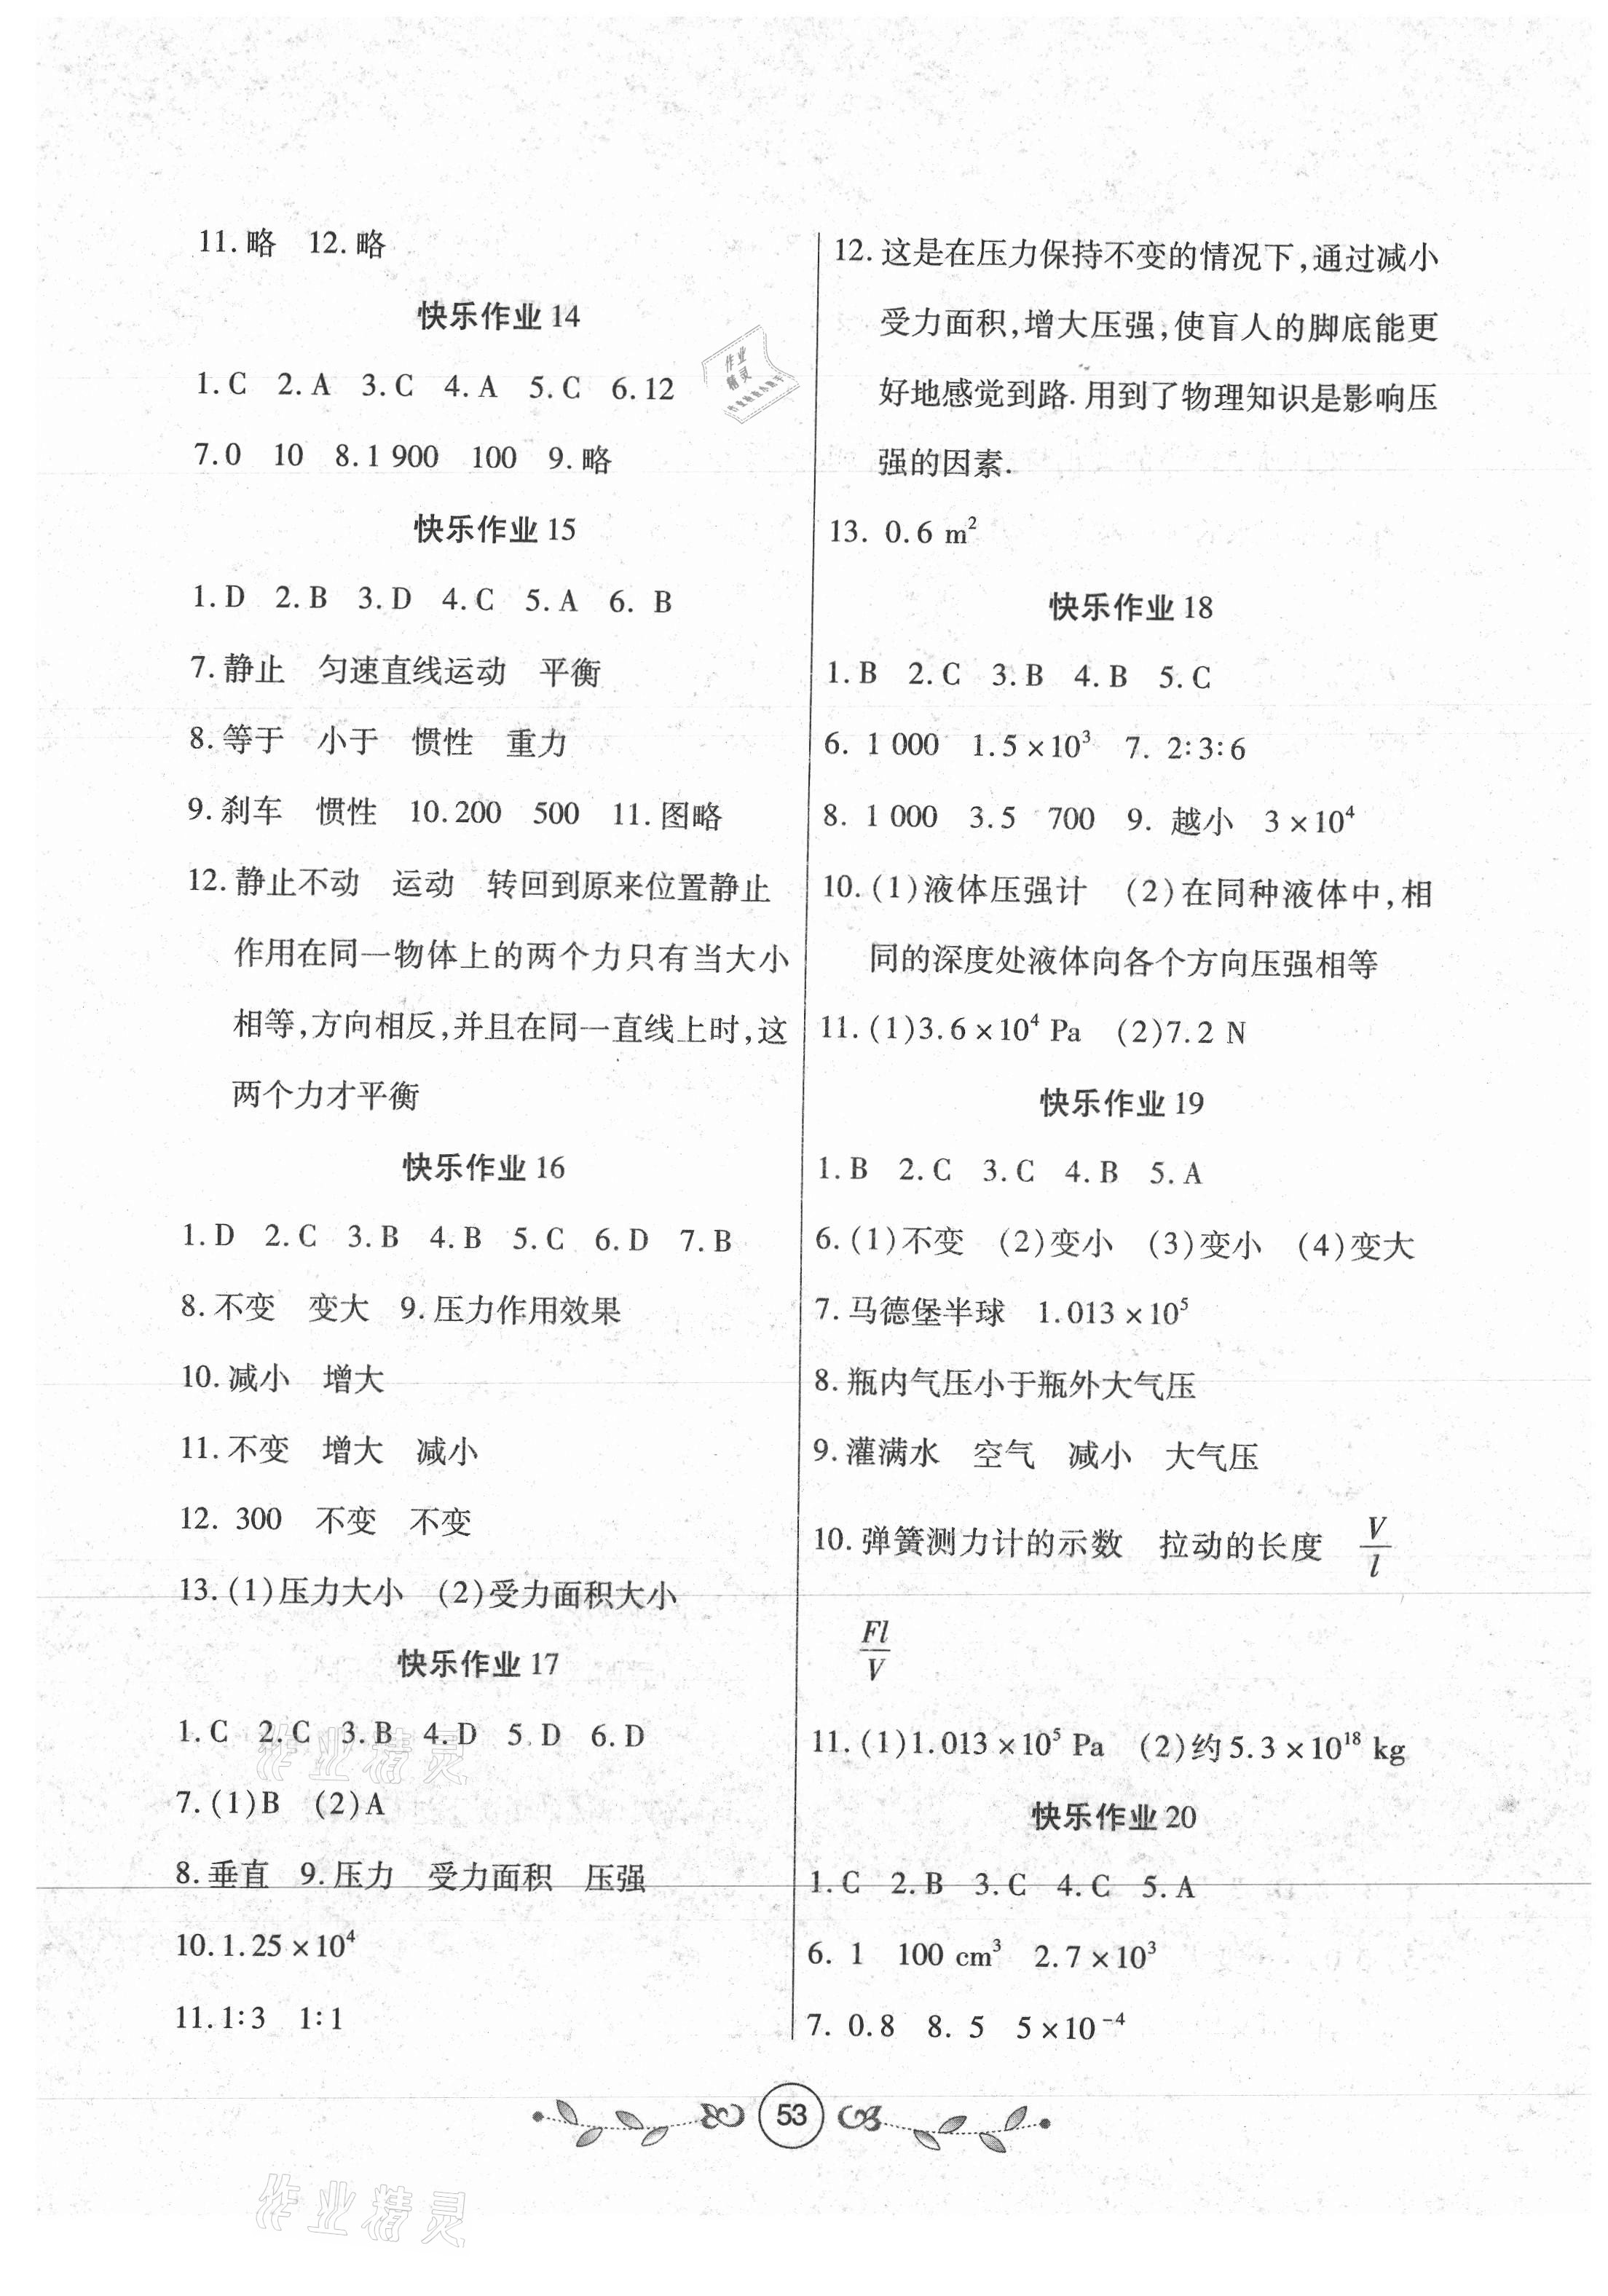 11.略 12.略
快乐作业 14
1.C 2.A 3.C 4.A 5.C 6.12
7.0 10 8.1 900 100 9.略
快乐作业 15
1.D 2.B 3.D 4.C 5.A 6. B
7.静止 匀速直线运动 平衡
8.等于 小于 惯性 重力
9.刹车 惯性 10.200 500 11.图略
12.静止不动 运动 转回到原来位置静止
作用在同一物体上的两个力只有当大小
相等,方向相反,并且在同一直线上时,这
两个力才平衡
快乐作业 16
1.D 2.C 3.B 4.B 5.C 6.D 7.B
8.不变 变大 9.压力作用效果
10.减小 增大
11.不变 增大 减小
12. 300 不变 不变
13.(1)压力大小 (2)受力面积大小
快乐作业 17
1.C 2.C 3.B 4.D 5.D 6.D
7.(1)B (2)A
8.垂直 9.压力 受力面积 压强
10.1.25×10⁴
11.1∶3 1∶1
12.这是在压力保持不变的情况下,通过减小
受力面积,增大压强,使盲人的脚底能更
好地感觉到路.用到了物理知识是影响压
强的因素.
13. 0.6 m²
快乐作业 18
1.B 2.C 3.B 4.B 5.C
6. 1 000 1.5×10³ 7. 2∶3∶6
8. 1 000 3.5 700 9. 越小 3×10⁴
10.(1)液体压强计 (2)在同种液体中,相
同的深度处液体向各个方向压强相等
11.(1)3.6×10⁴ Pa (2)7.2 N
快乐作业 19
1.B 2.C 3.C 4.B 5.A
6.(1)不变 (2)变小 (3)变小 (4)变大
7.马德堡半球 1.013×10⁵
8.瓶内气压小于瓶外大气压
9.灌满水 空气 减小 大气压
10.弹簧测力计的示数 拉动的长度 V/l
Fl/V
11.(1)1.013×10⁵ Pa (2)约5.3×10¹⁸ kg
快乐作业 20
1.C 2.B 3.C 4.C 5.A
6. 1 100 cm³ 2.7×10³
7. 0.8 8. 5 5×10⁻⁴
53
作业精灵
作业精灵
作业
精灵